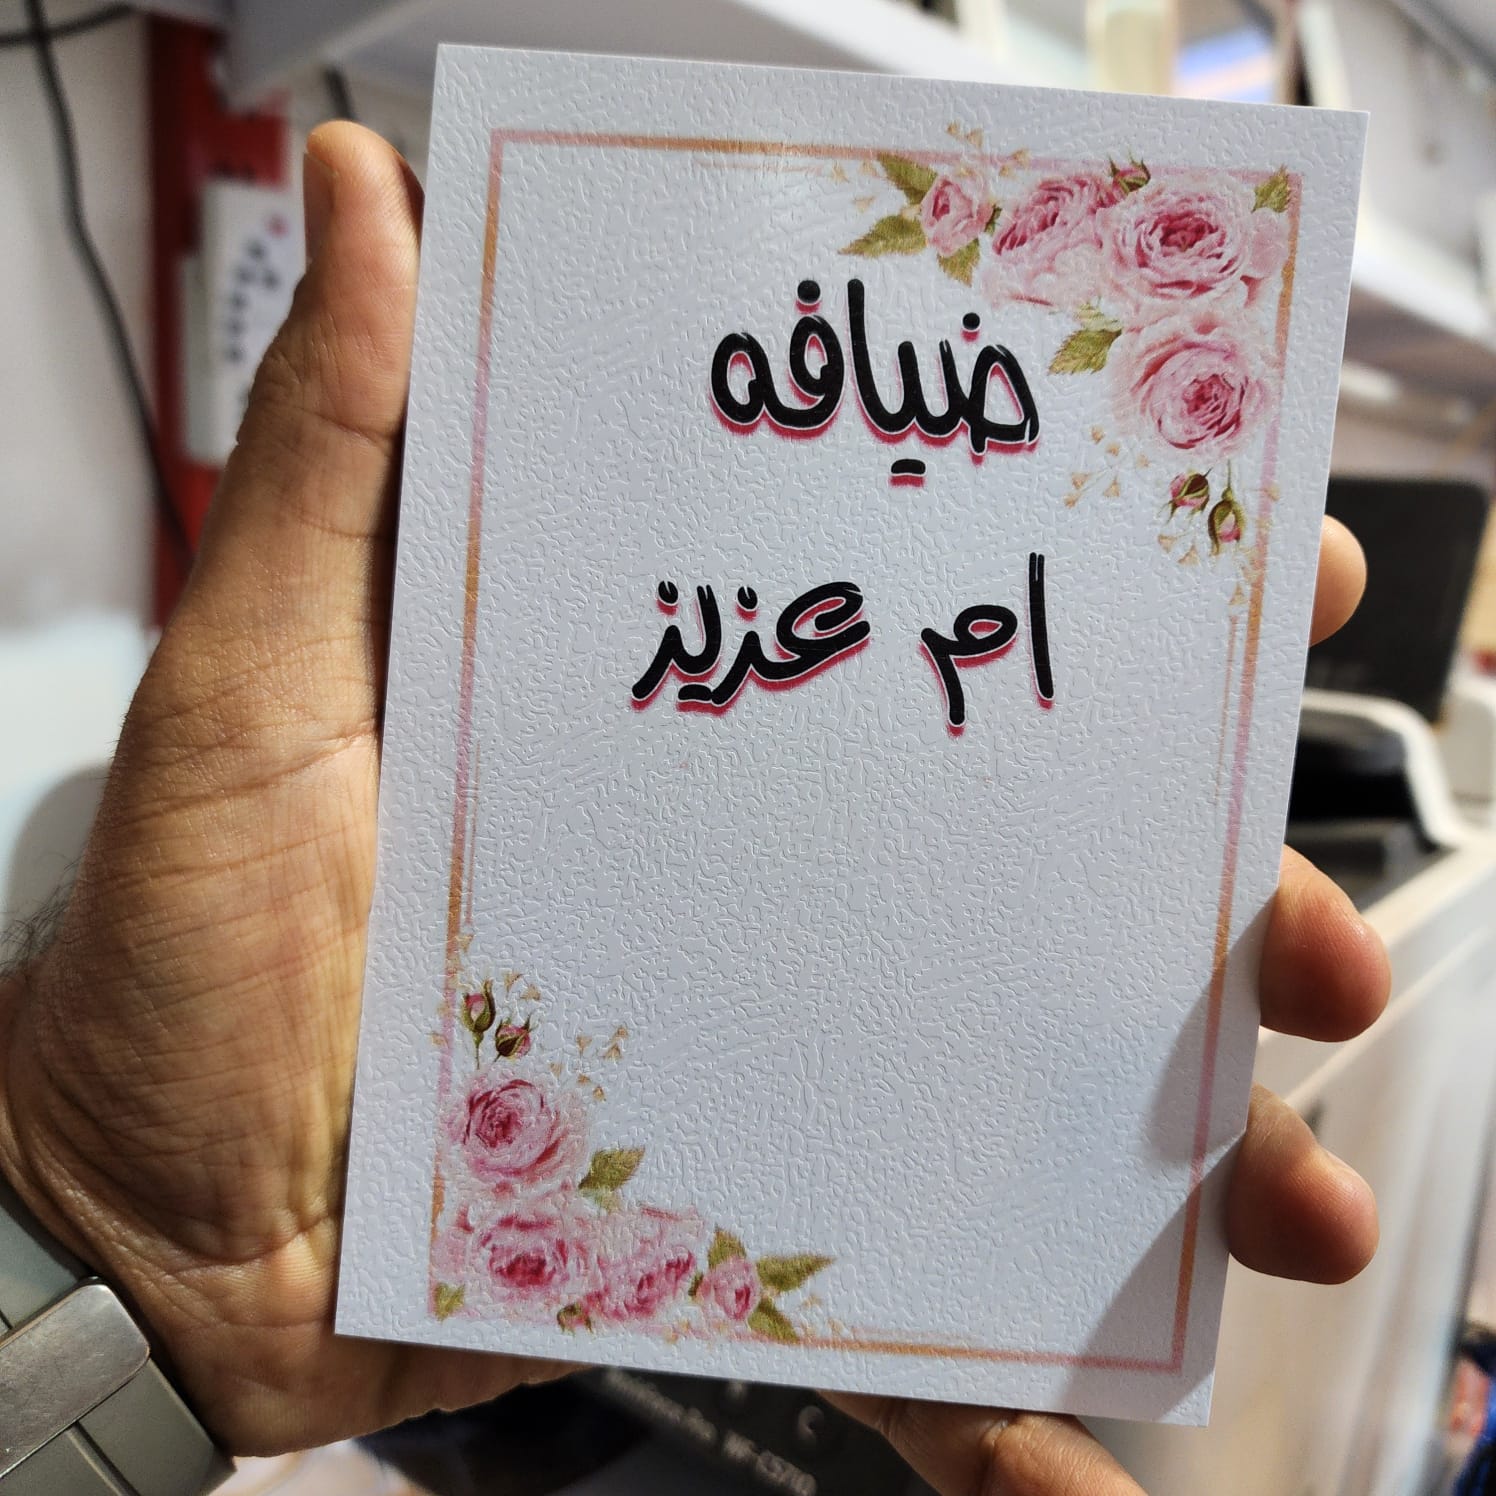 ضيافه
ام عزيز